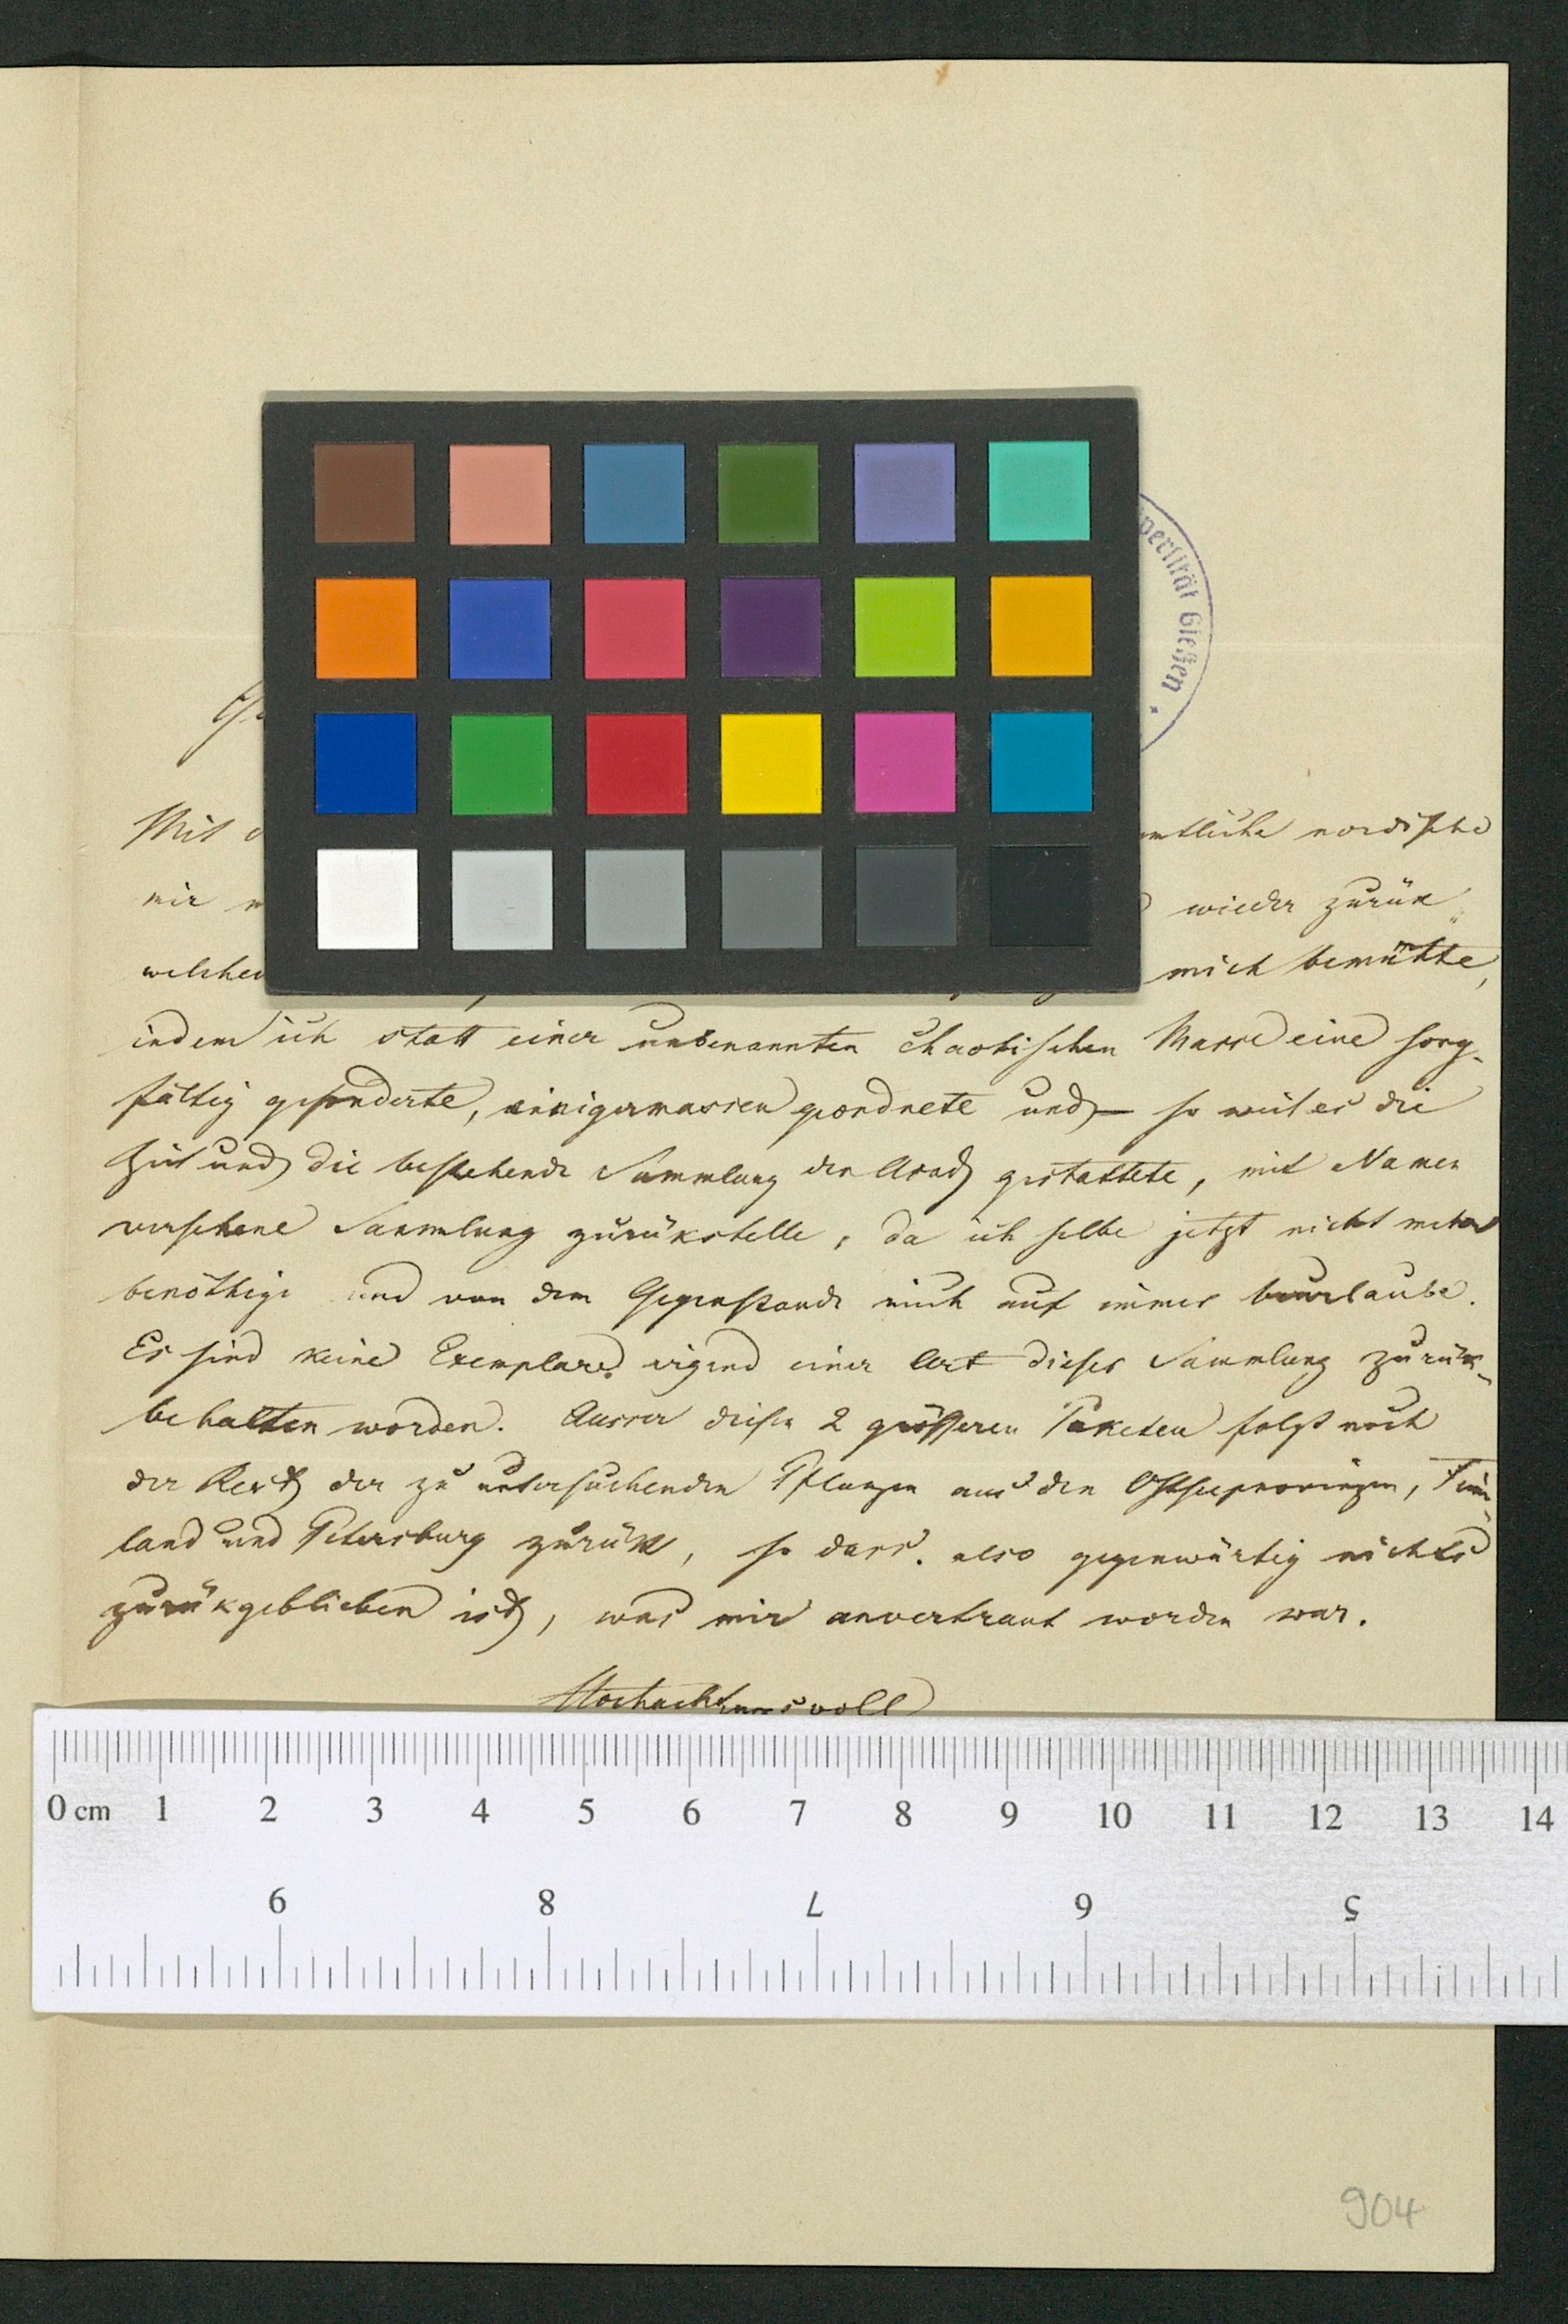 versität Gießen
Mit
mtliche nordische
mir
wieder zurük
welchen
mich bemühte,
indem ich statt einer unbenannten chaotischen Masse eine sorg-
fältig gesonderte, einigermassen geordnete und — so weit es die
Zeit und die bestehende Sammlung der Acad gestattete, mit Namen
versehene Sammlung zurükstelle, da ich selbe jetzt nicht mehr
benöthige und von dem Gegenstande mich auf immer beurlaube.
Es sind keine Exemplare irgend einer Art dieser Sammlung zurük-
behalten worden. Ausser diesen 2 grösseren Paketen folgt noch
der Rest der zu untersuchenden Pflanzen aus den Ostseeprovinzen, Finn-
land und Petersburg zurük, so dass also gegenwärtig nichts
zurükgeblieben ist, was mir anvertraut worden war.
Hochachtungsvoll
0 cm 1 2 3 4 5 6 7 8 9 10 11 12 13 14
9 8 7 6 5
904